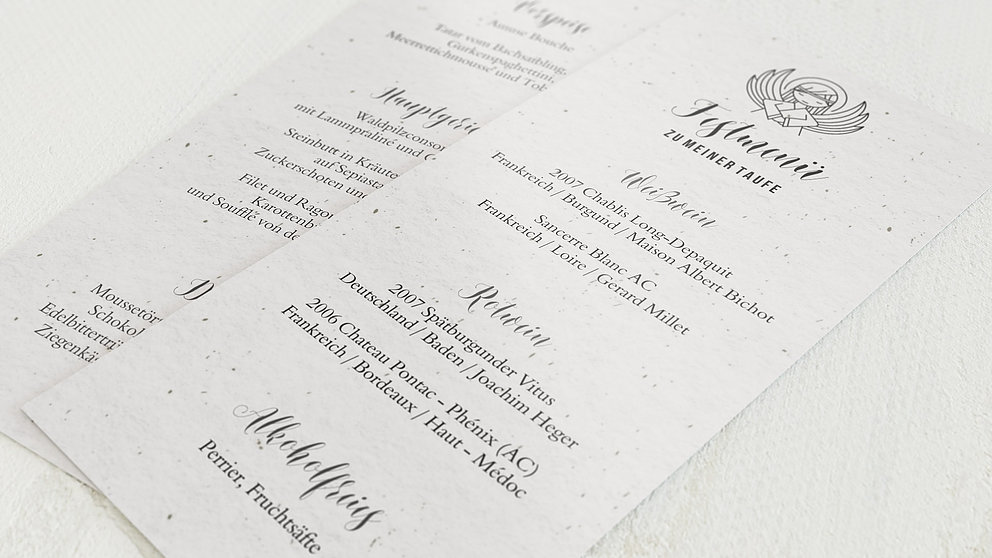 Festmenü
ZU MEINER TAUFE
Weißwein
2007 Chablis Long-Depaquit
Frankreich / Burgund / Maison Albert Bichot
Sancerre Blanc AC
Frankreich / Loire / Gerard Millet
Rotwein
2007 Spätburgunder Vitus
Deutschland / Baden / Joachim Heger
2006 Chateau Pontac - Phénix (AC)
Frankreich / Bordeaux / Haut - Médoc
Alkoholfreis
Perrier, Fruchtsäfte
Vorspeise
Amuse Bouche
Tatar vom Bachsaibling,
Gurkenspaghettini,
Meerrettichmousse und Tob
Hauptgeri
Waldpilzconsom
mit Lammpraliné und
Steinbutt in Kräute
auf Sepiasta
Zuckerschoten und
Filet und Ragou
Karottenb
und Soufflé von de
D
Moussetör
Schokol
Edelbittertrü
Ziegenkä